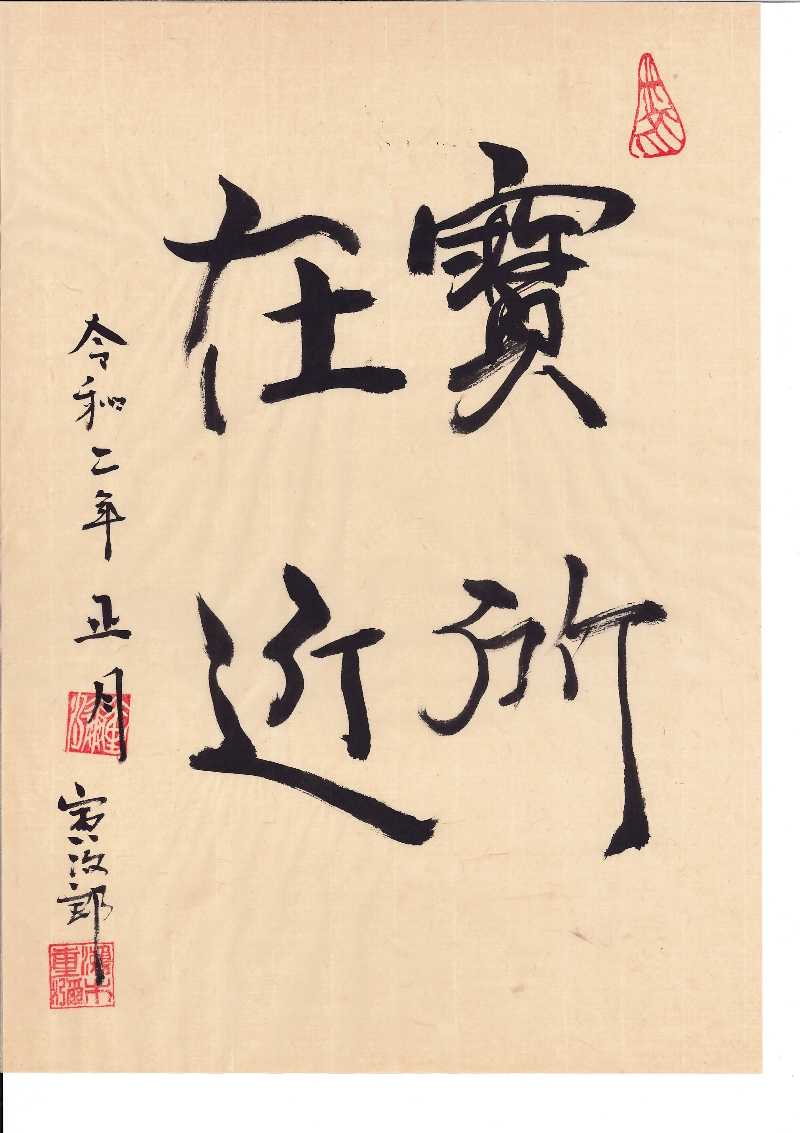 寶所
在近
令和二年正月
寅次郎